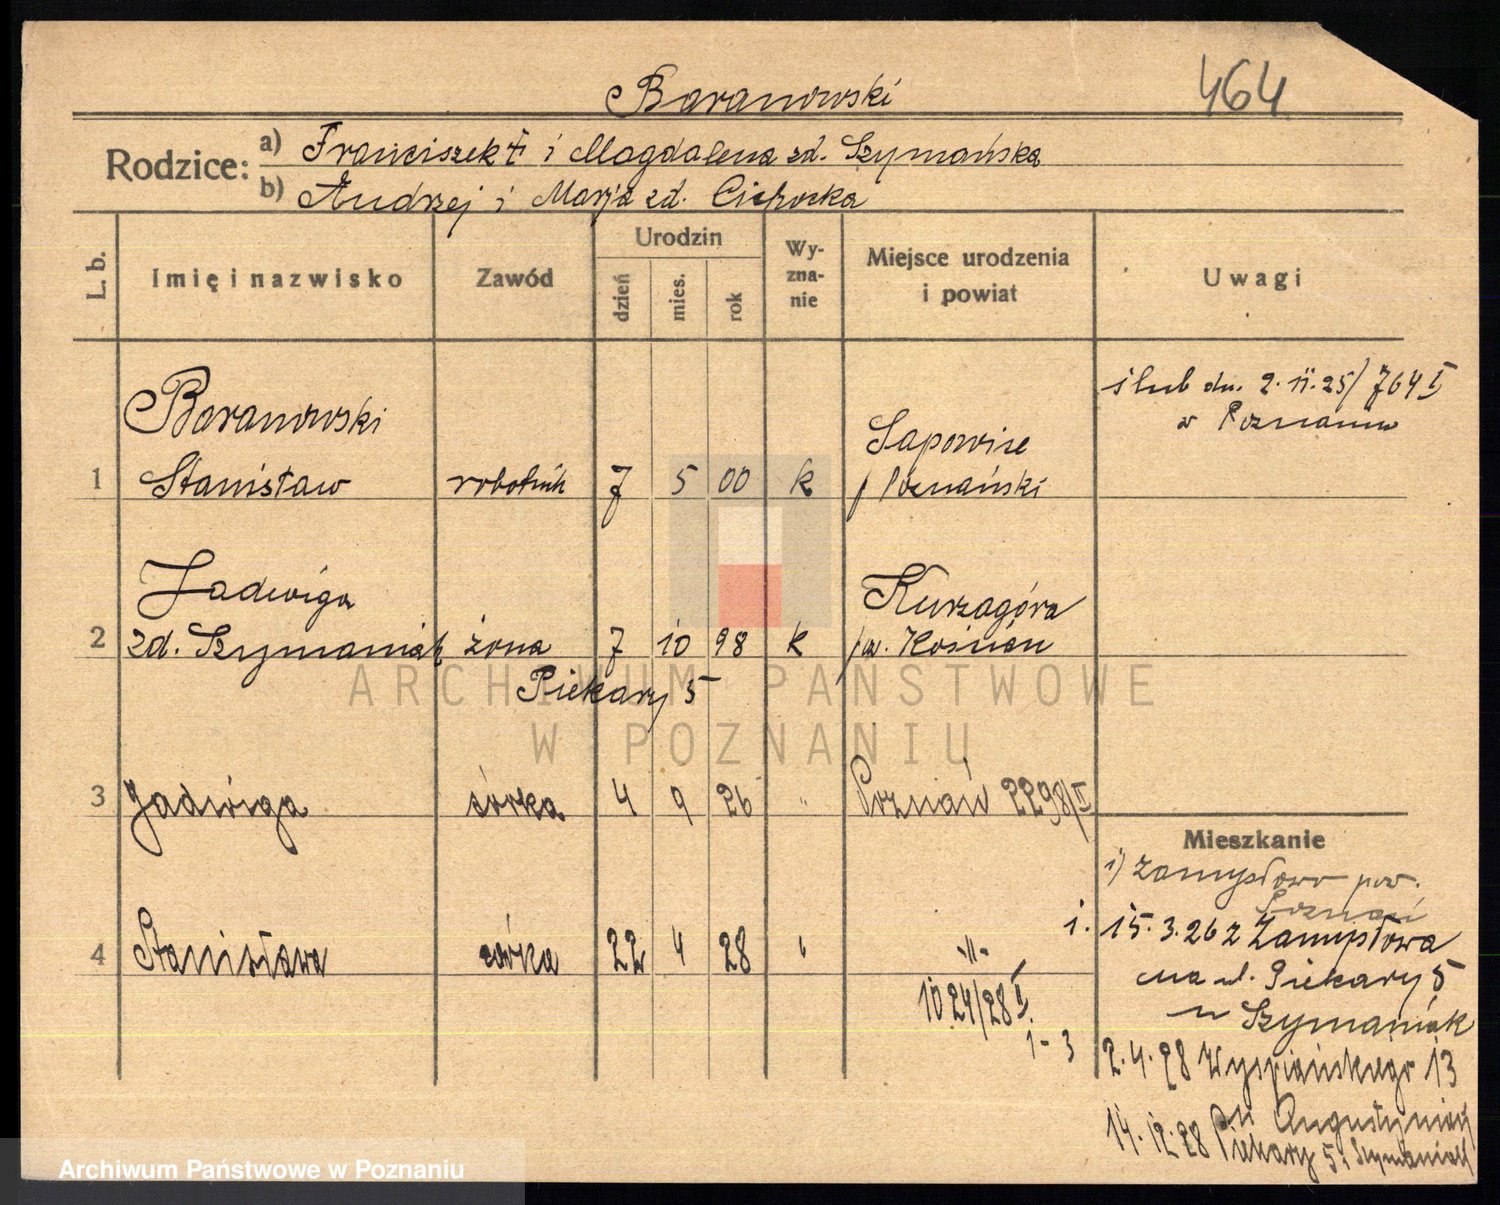 464
Baranowski
Rodzice:
a) Franciszek † i Magdalena zd. Szymańska
b) Andrzej i Marja zd. Cichocka
L. b.
Imię i nazwisko
Zawód
Urodzin
dzień
mies.
rok
Wy-
zna-
nie
Miejsce urodzenia
i powiat
Uwagi
Baranowski
1 Stanisław robotnik 7 5 00 k
Sapowice
p Poznański
ślub dn. 2.11.25/764 I
w Poznaniu
Jadwiga
2 zd. Szymaniak żona 7 10 98 k
Kurzagóra
pw. Kościan
Piekary 5
3 Jadwiga córka 4 9 26 " Poznań 2298/II
4 Stanisława córka 22 4 28 " -"-
1024/28 I.
1-3
Mieszkanie
1) Zamysłowo pow.
Poznań
1. 15.3.26 z Zamysłowa
na ul. Piekary 5
u Szymaniak
2.4.28 Wyspiańskiego 13
u Augustyniak
14.12.28 Piekary 5 Szymaniak
ARCHIWUM PAŃSTWOWE
W POZNANIU
Archiwum Państwowe w Poznaniu